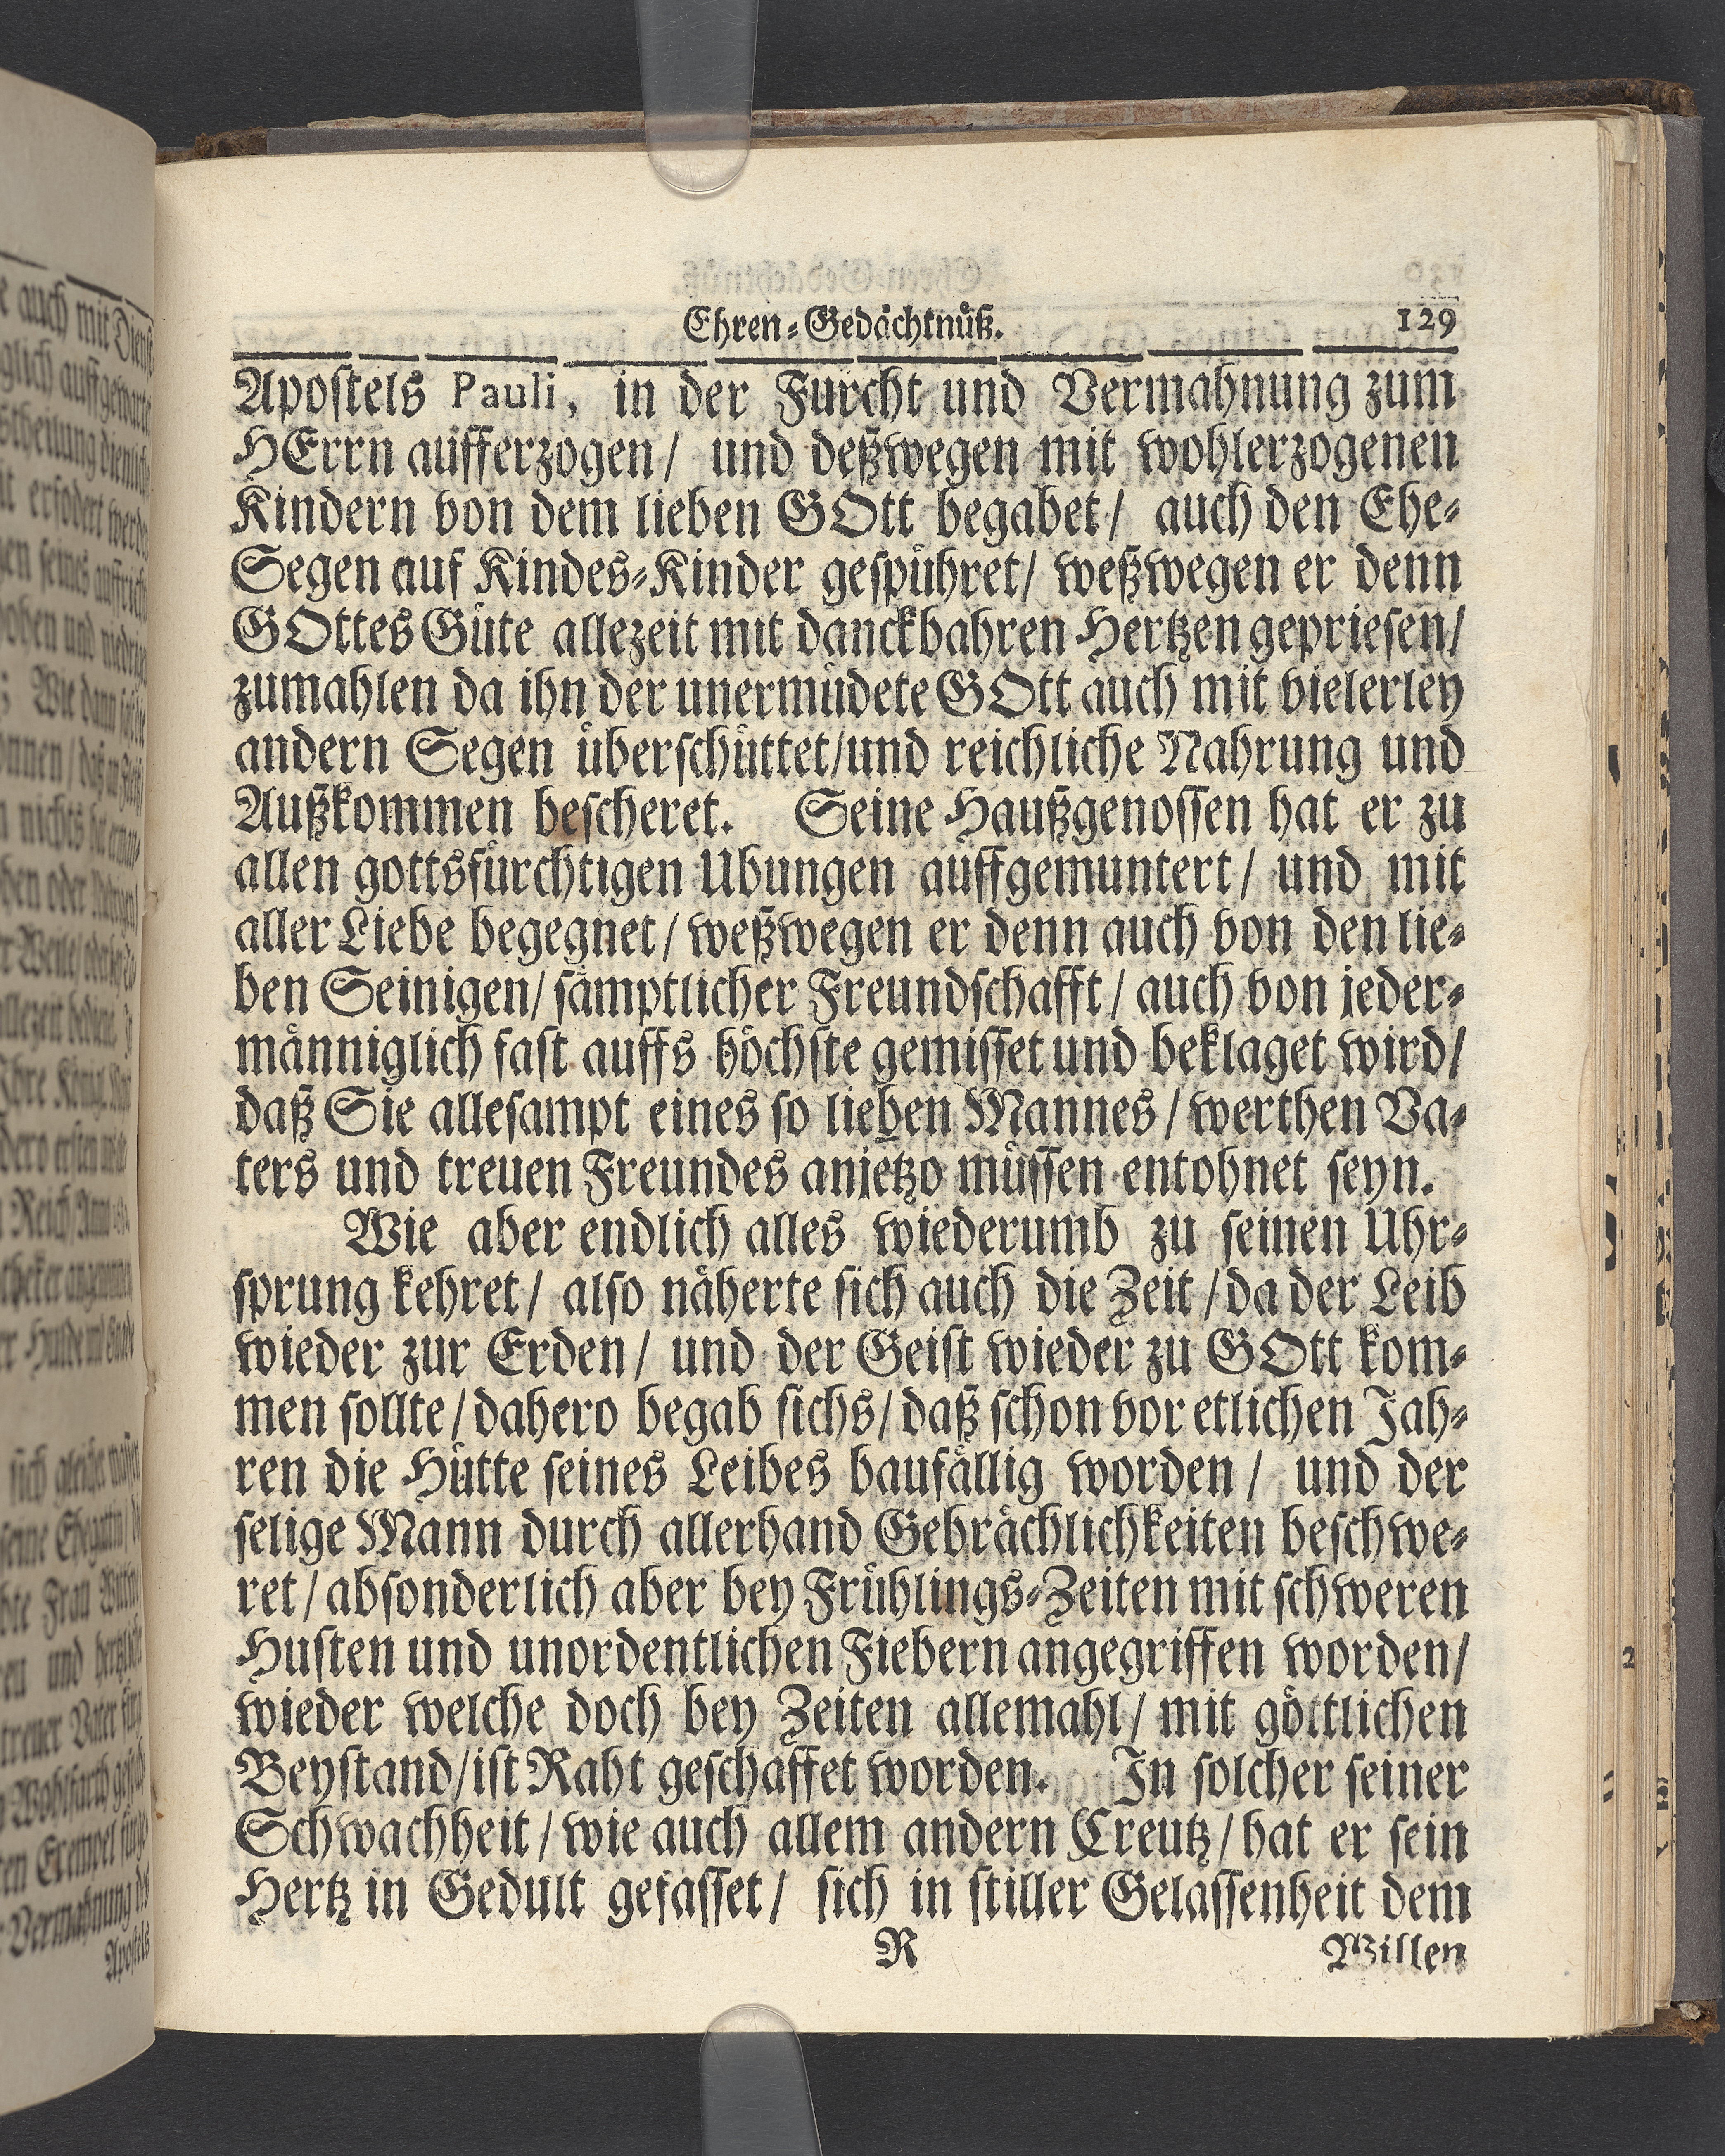 Ehren-Gedächtnüß. 129
Apostels Pauli, in der Furcht und Vermahnung zum
HErrn aufferzogen/ und deßwegen mit wohlerzogenen
Kindern von dem lieben GOtt begabet/ auch den Ehe-
Segen auf Kindes-Kinder gespühret/ weßwegen er denn
GOttes Güte allezeit mit danckbahren Hertzen gepriesen/
zumahlen da ihn der unermüdete GOtt auch mit vielerley
andern Segen überschüttet/und reichliche Nahrung und
Außkommen bescheret. Seine Haußgenossen hat er zu
allen gottsfürchtigen Ubungen auffgemuntert/ und mit
aller Liebe begegnet/ weßwegen er denn auch von den lie-
ben Seinigen/ sämptlicher Freundschafft/ auch von jeder-
männiglich fast auffs höchste gemisset und beklaget wird/
daß Sie allesampt eines so lieben Mannes/ werthen Va-
ters und treuen Freundes anjetzo müssen entohnet seyn.
Wie aber endlich alles wiederumb zu seinen Uhr-
sprung kehret/ also näherte sich auch die Zeit/da der Leib
wieder zur Erden/ und der Geist wieder zu GOtt kom-
men sollte/dahero begab sichs/daß schon vor etlichen Jah-
ren die Hütte seines Leibes baufällig worden/ und der
selige Mann durch allerhand Gebrächlichkeiten beschwe-
ret/absonderlich aber bey Frühlings-Zeiten mit schweren
Husten und unordentlichen Fiebern angegriffen worden/
wieder welche doch bey Zeiten allemahl/ mit göttlichen
Beystand/ist Raht geschaffet worden. In solcher seiner
Schwachheit/wie auch allem andern Creutz/hat er sein
Hertz in Gedult gefasset/ sich in stiller Gelassenheit dem
R Willen